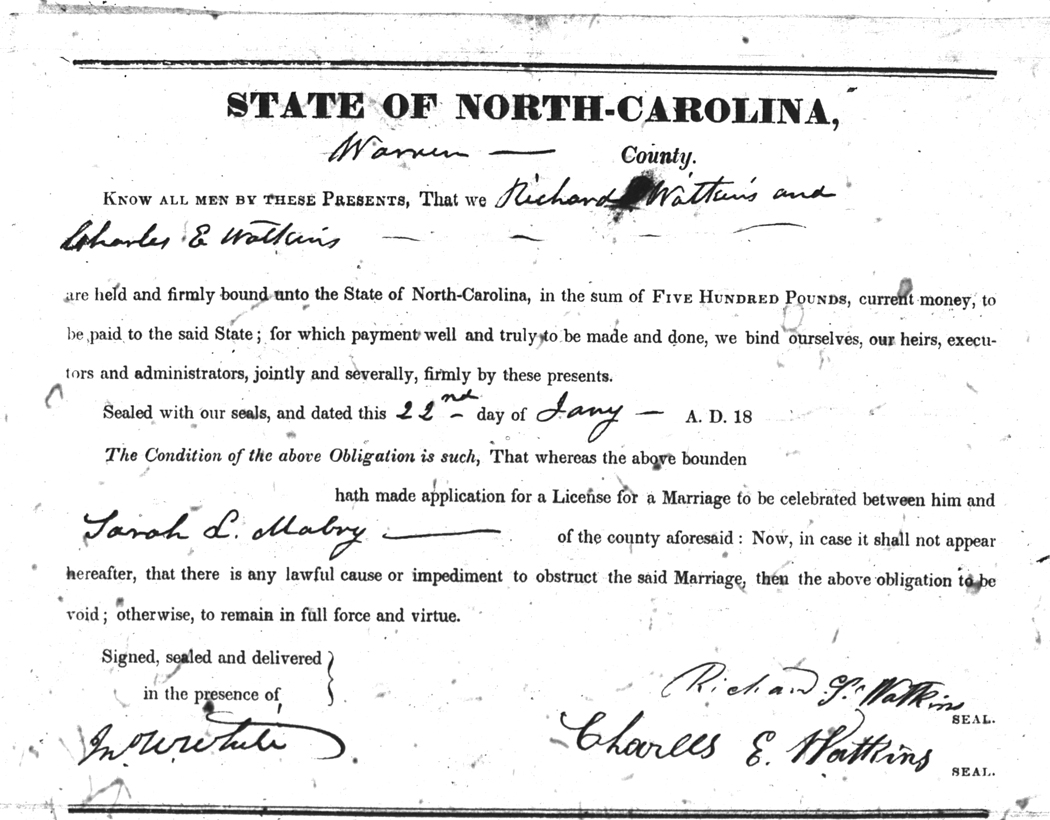 STATE OF NORTH-CAROLINA,
Warren — County.
KNOW ALL MEN BY THESE PRESENTS, That we Richard Watkins and
Charles E Watkins
are held and firmly bound unto the State of North-Carolina, in the sum of FIVE HUNDRED POUNDS, current money, to
be paid to the said State; for which payment well and truly to be made and done, we bind ourselves, our heirs, execu-
tors and administrators, jointly and severally, firmly by these presents.
Sealed with our seals, and dated this 22nd day of Jany — A. D. 18
The Condition of the above Obligation is such, That whereas the above bounden
hath made application for a License for a Marriage to be celebrated between him and
Sarah L. Mabry — of the county aforesaid: Now, in case it shall not appear
hereafter, that there is any lawful cause or impediment to obstruct the said Marriage, then the above obligation to be
void; otherwise, to remain in full force and virtue.
Signed, sealed and delivered
in the presence of
Richard Watkins
SEAL.
Jno W. White
Charles E. Watkins
SEAL.